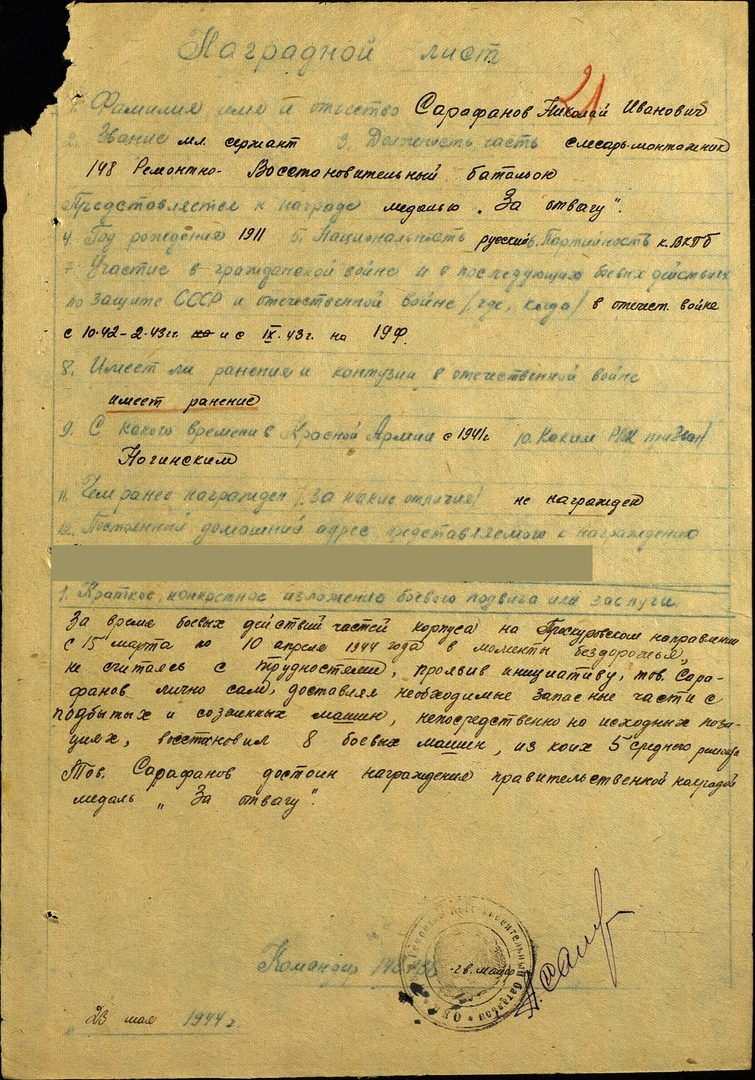 Наградной лист
21
1. Фамилия, имя и отчество Сарафанов Николай Иванович
2. Звание мл. сержант 3. Должность, часть слесарь-монтажник
148 Ремонтно-Восстановительный батальон
Представляется к награде медалью „За отвагу".
4. Год рождения 1911 5. Национальность русский 6. Партийность к. ВКПб
7. Участие в гражданской войне и в последующих боевых действиях
по защите СССР и отечественной войне /где, когда/ в отечест. война
с 10.42-2.43г. и с IX.43г. на 1УФ.
8. Имеет ли ранения и контузии в отечественной войне
имеет ранение
9. С какого времени в Красной Армии с 1941г 10. Каким РВК призван
Ногинским
11. Чем ранее награжден /за какие отличия/ не награжден
12. Постоянный домашний адрес представляемого к награждению
1. Краткое, конкретное изложение боевого подвига или заслуги.
За время боевых действий частей корпуса на Проскуровском направлении
с 15 марта по 10 апреля 1944 года в моменты бездорожья,
не считаясь с трудностями, проявив инициативу, тов. Сара-
фанов лично сам, доставляя необходимые запасные части с
подбитых и сожженных машин, непосредственно на исходных пози-
циях, восстановил 8 боевых машин, из коих 5 среднего ремонта
Тов. Сарафанов достоин награждения правительственной наградой
медаль „За отвагу".
Командир 148
-гв. майор
23 мая 1944 г.